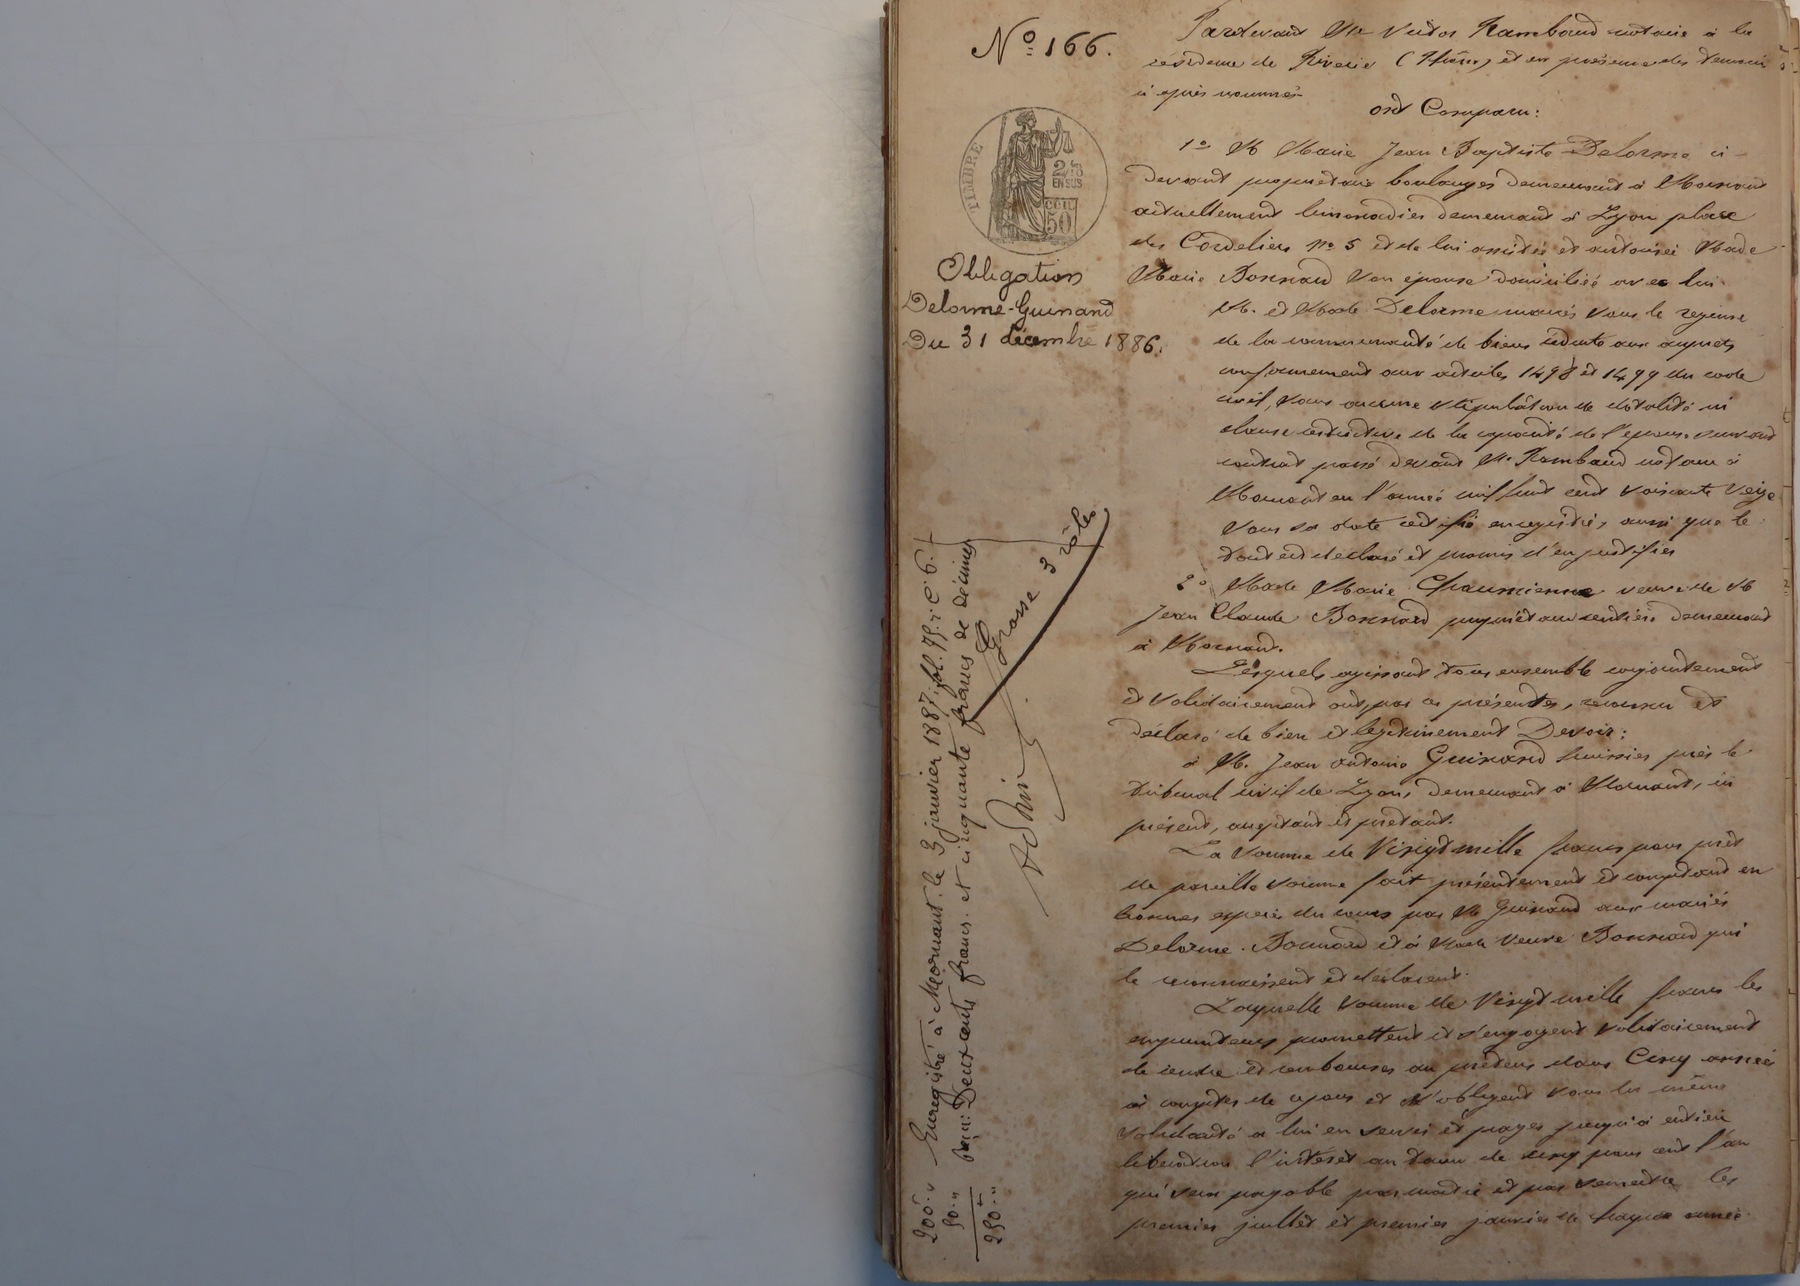 N° 166.
TIMBRE
2/10
EN SUS
50
Obligation
Delorme-Guinand
Du 31 décembre 1886.
Enregistré à Mornant le 3 janvier 1887, fol. 79. r. C. 6.
Reçu: Deux cents francs et cinquante francs de décimes
200. "
50. "
250. "
Grosse 3 rôles
Pardevant Me Victor Rambaud notaire à la
résidence de Riverie (Rhône) et en présence des témoins
ci après nommés
ont Comparu:
1° M Marie Jean Baptiste Delorme ci-
devant propriétaire boulanger demeurant à Mornant
actuellement limonadier demeurant à Lyon place
des Cordeliers n° 5 et de lui assistée et autorisée Made
Marie Bonnard son épouse domiciliée avec lui
M. et Made Delorme mariés sous le régime
de la communauté de biens réduite aux acquets
conformément aux articles 1498 et 1499 du code
civil, sous aucune stipulation de dotalité ni
clause restrictive de la capacité de l'épouse suivant
contrat passé devant Me Rambaud notaire à
Mornant en l'année mil huit cent soixante seize
sous sa date certifié enregistré, ainsi que le
tout est déclaré et promis d'en justifier
2° Made Marie Chaumienne veuve de M
Jean Claude Bonnard propriétaire rentière demeurant
à Mornant.
Lesquels agissant tous ensemble conjointement
et solidairement ont, par ces présentes, reconnu et
déclaré de bien et légitimement Devoir:
à M. Jean Antoine Guinand huissier près le
tribunal civil de Lyon, demeurant à Mornant, ici
présent, acceptant et prêtant.
La somme de Vingt mille francs pour prêt
de pareille somme fait présentement et comptant en
bonnes espèces du cours par M Guinand aux mariés
Delorme-Bonnard et à Made Veuve Bonnard qui
le reconnaissent et déclarent.
Laquelle somme de Vingt mille francs les
emprunteurs promettent et s'engagent solidairement
de rendre et rembourser au prêteur dans Cinq années
à compter de ce jour et s'obligent sous la même
solidarité à lui en servir et payer jusqu'à entière
libération l'intérêt au taux de cinq pour cent l'an
qui sera payable par moitié et par semestre les
premier juillet et premier janvier de chaque année